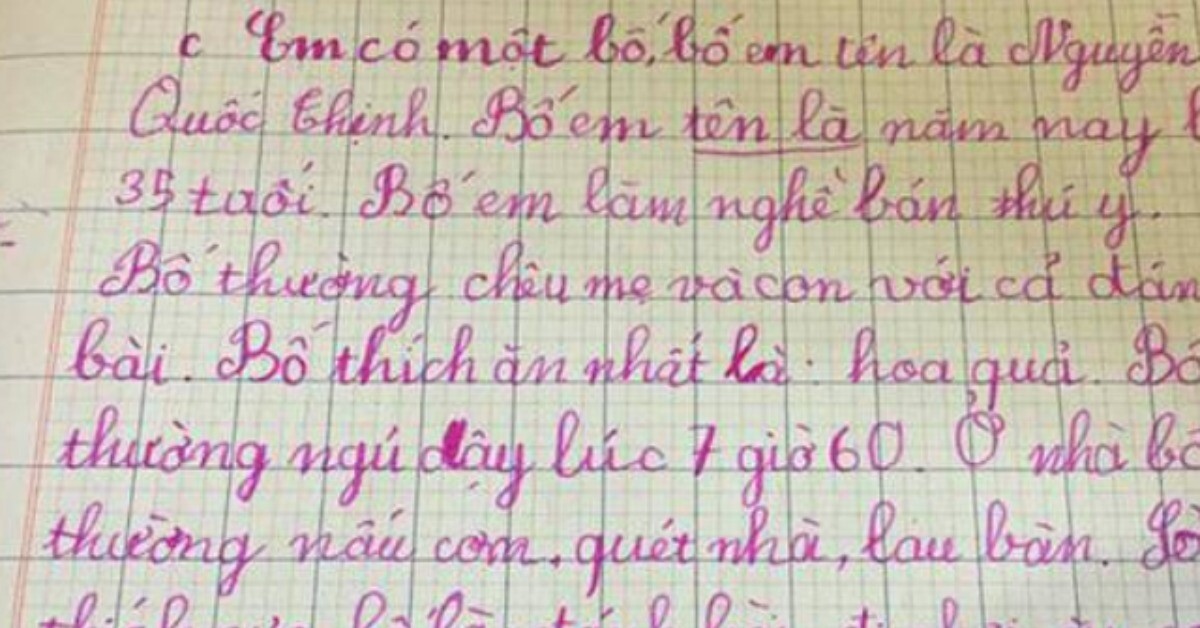 c Em có một bố, bố em tên là Nguyễn
Quốc Thịnh. Bố em tên là năm nay
35 tuổi. Bố em làm nghề bán thú y.
Bố thường chêu mẹ và con với cả đán
bài. Bố thích ăn nhất là: hoa quả. Bố
thường ngủ dậy lúc 7 giờ 60. Ở nhà bố
thường nấu cơm, quét nhà, lau bàn.